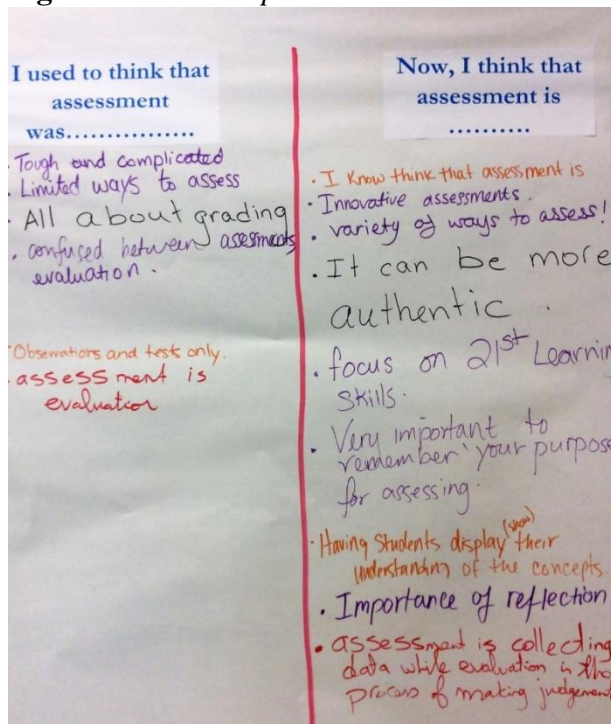 I used to think that
assessment
was...............
Tough and complicated
. Limited ways to assess
. All about grading
. confused between assesments
evaluation.
Observations and tests only.
. assessment is
evaluation
Now, I think that
assessment is
..........
. I Know think that assessment is
. Innovative assessments.
. variety of ways to assess!
. It can be more
authentic.
. focus on 21st Learnin
Skills.
. Very important to
remember your purpose
for assessing.
. Having Students display (show) their
understanding of the concepts.
. Importance of reflection
. assessment is collecting
data while evaluation is the
process of making judgement